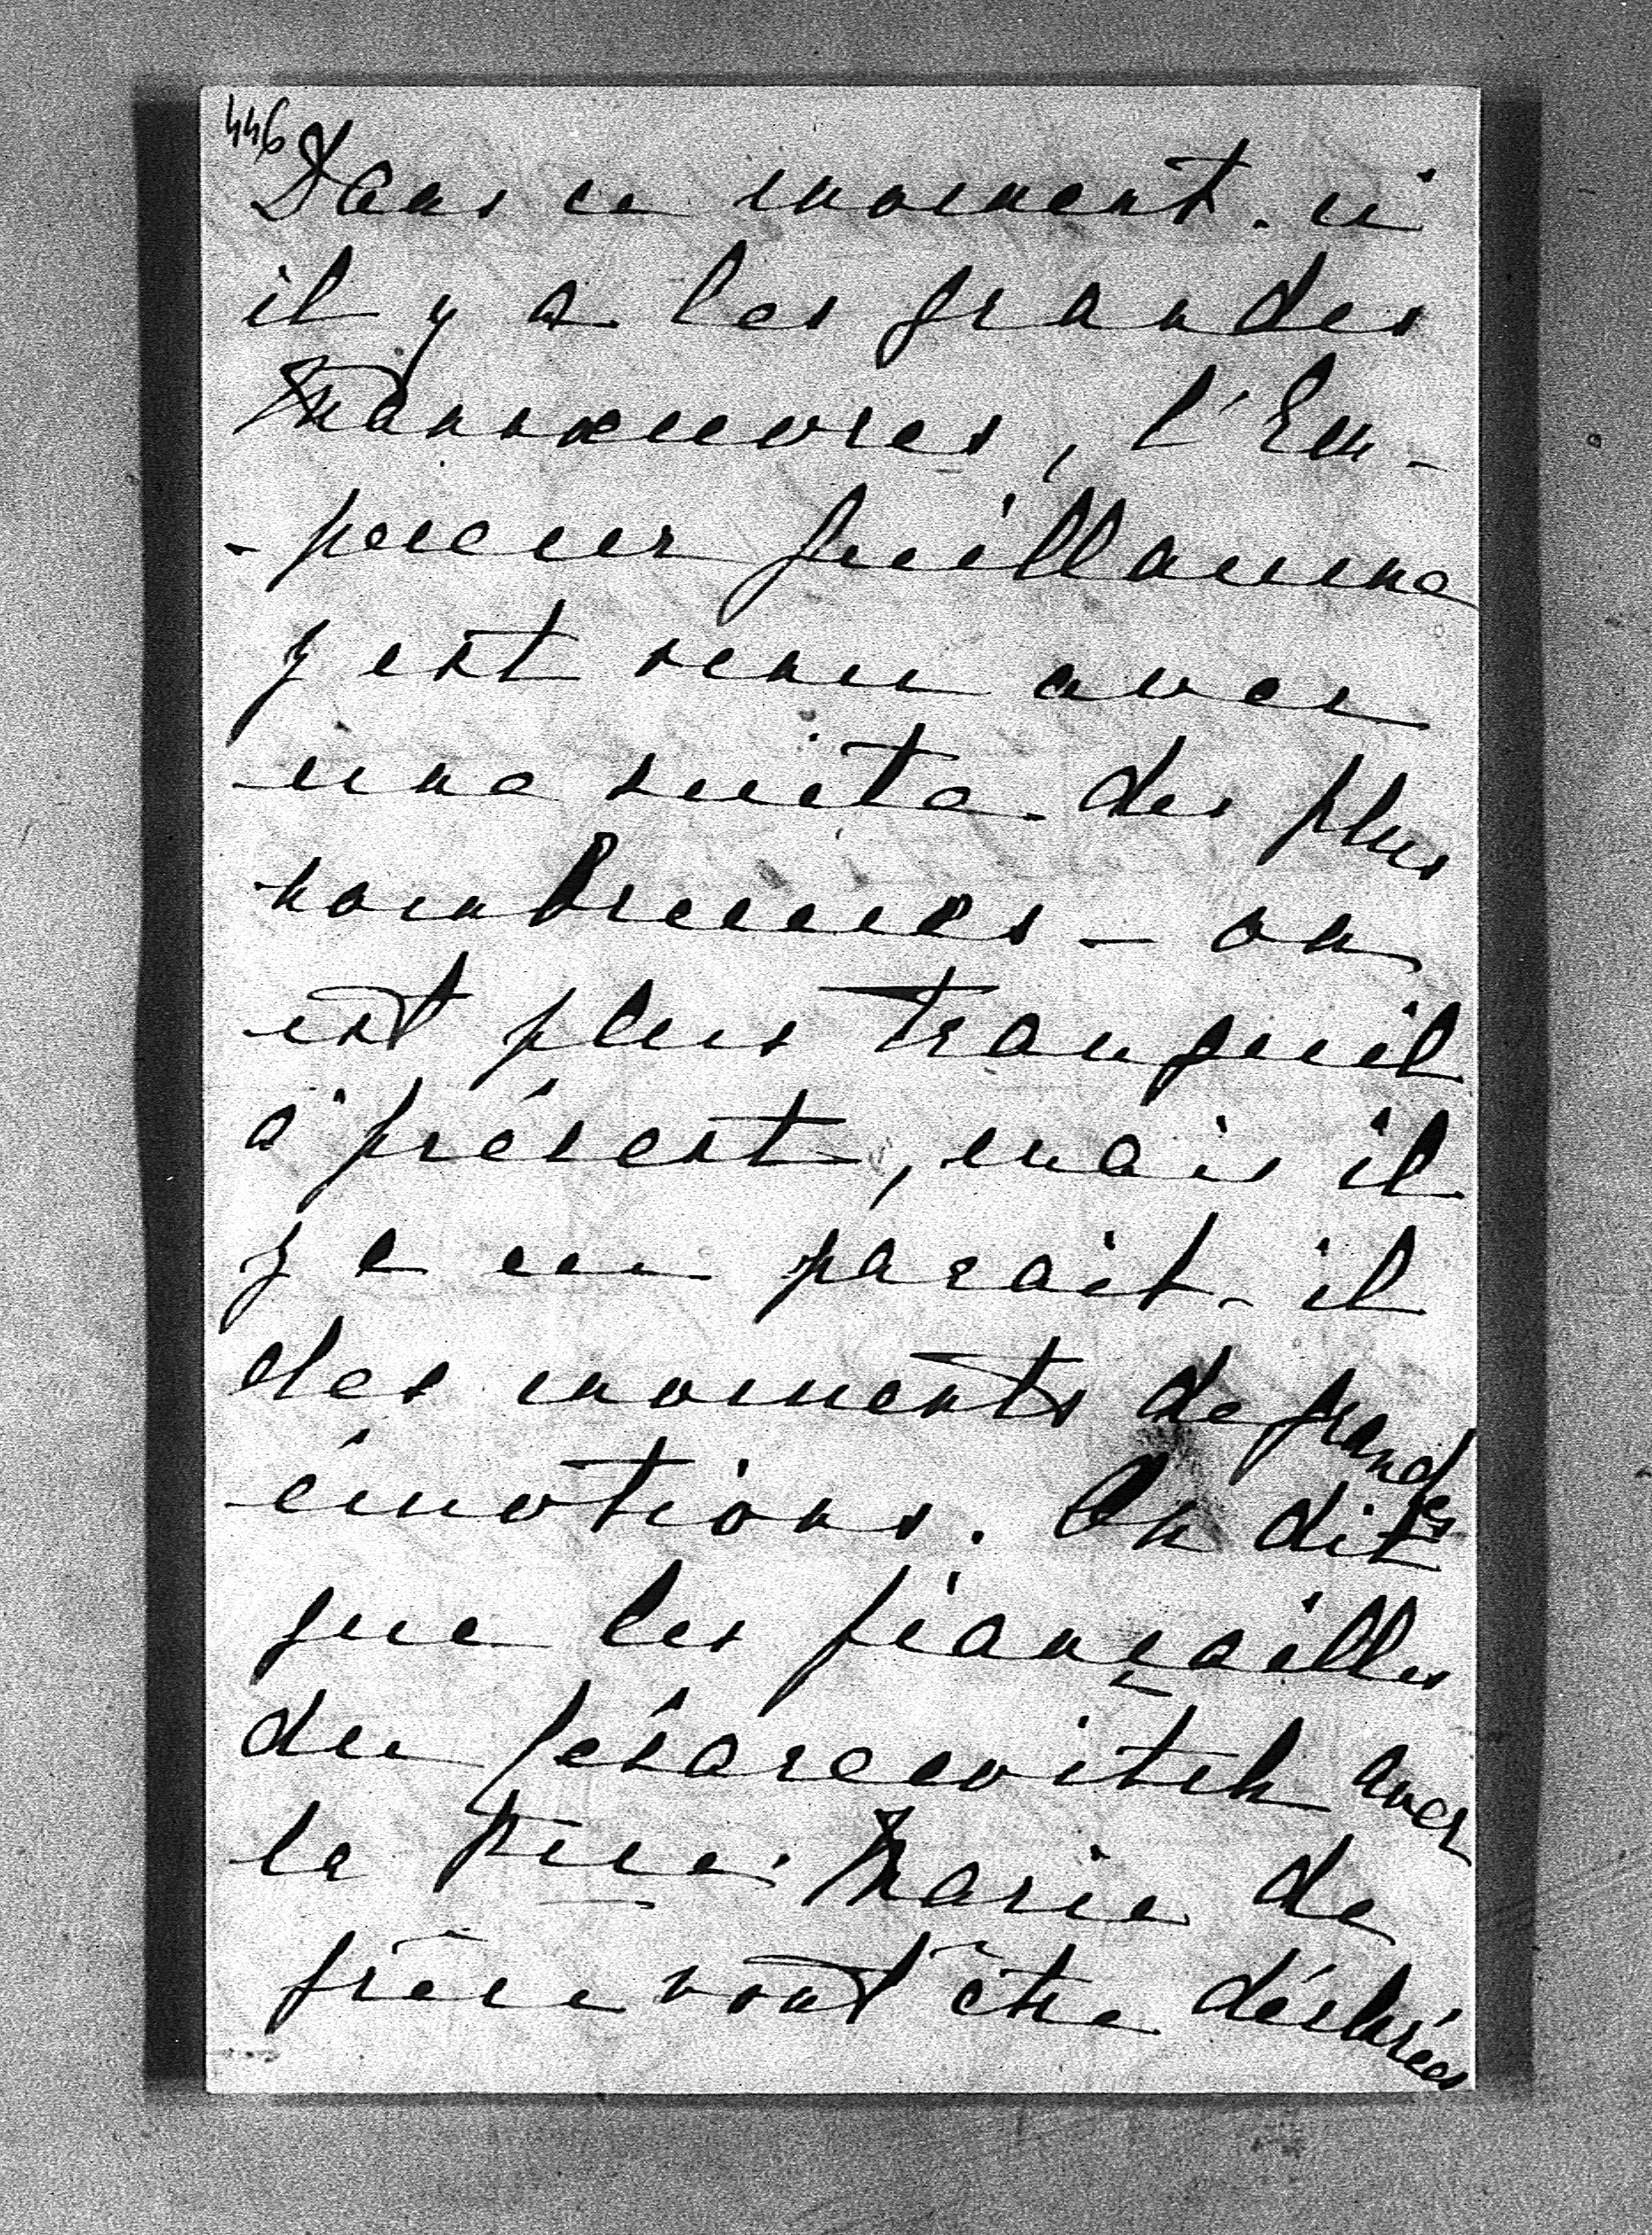 446
Dans ce moment-ci
il y a les grandes
Manoœuvres, l'Em-
-pereur Guillaume
y est venu avec
une suite des plus
nombreuses – on
est plus tranquil
à présent, mais il
y a eu parait-il
des moments de grandes
émotions. On dit
que les fiançailles
du Césarewitch avec
la Pcesse. Marie de
Grèce vont être déclarées